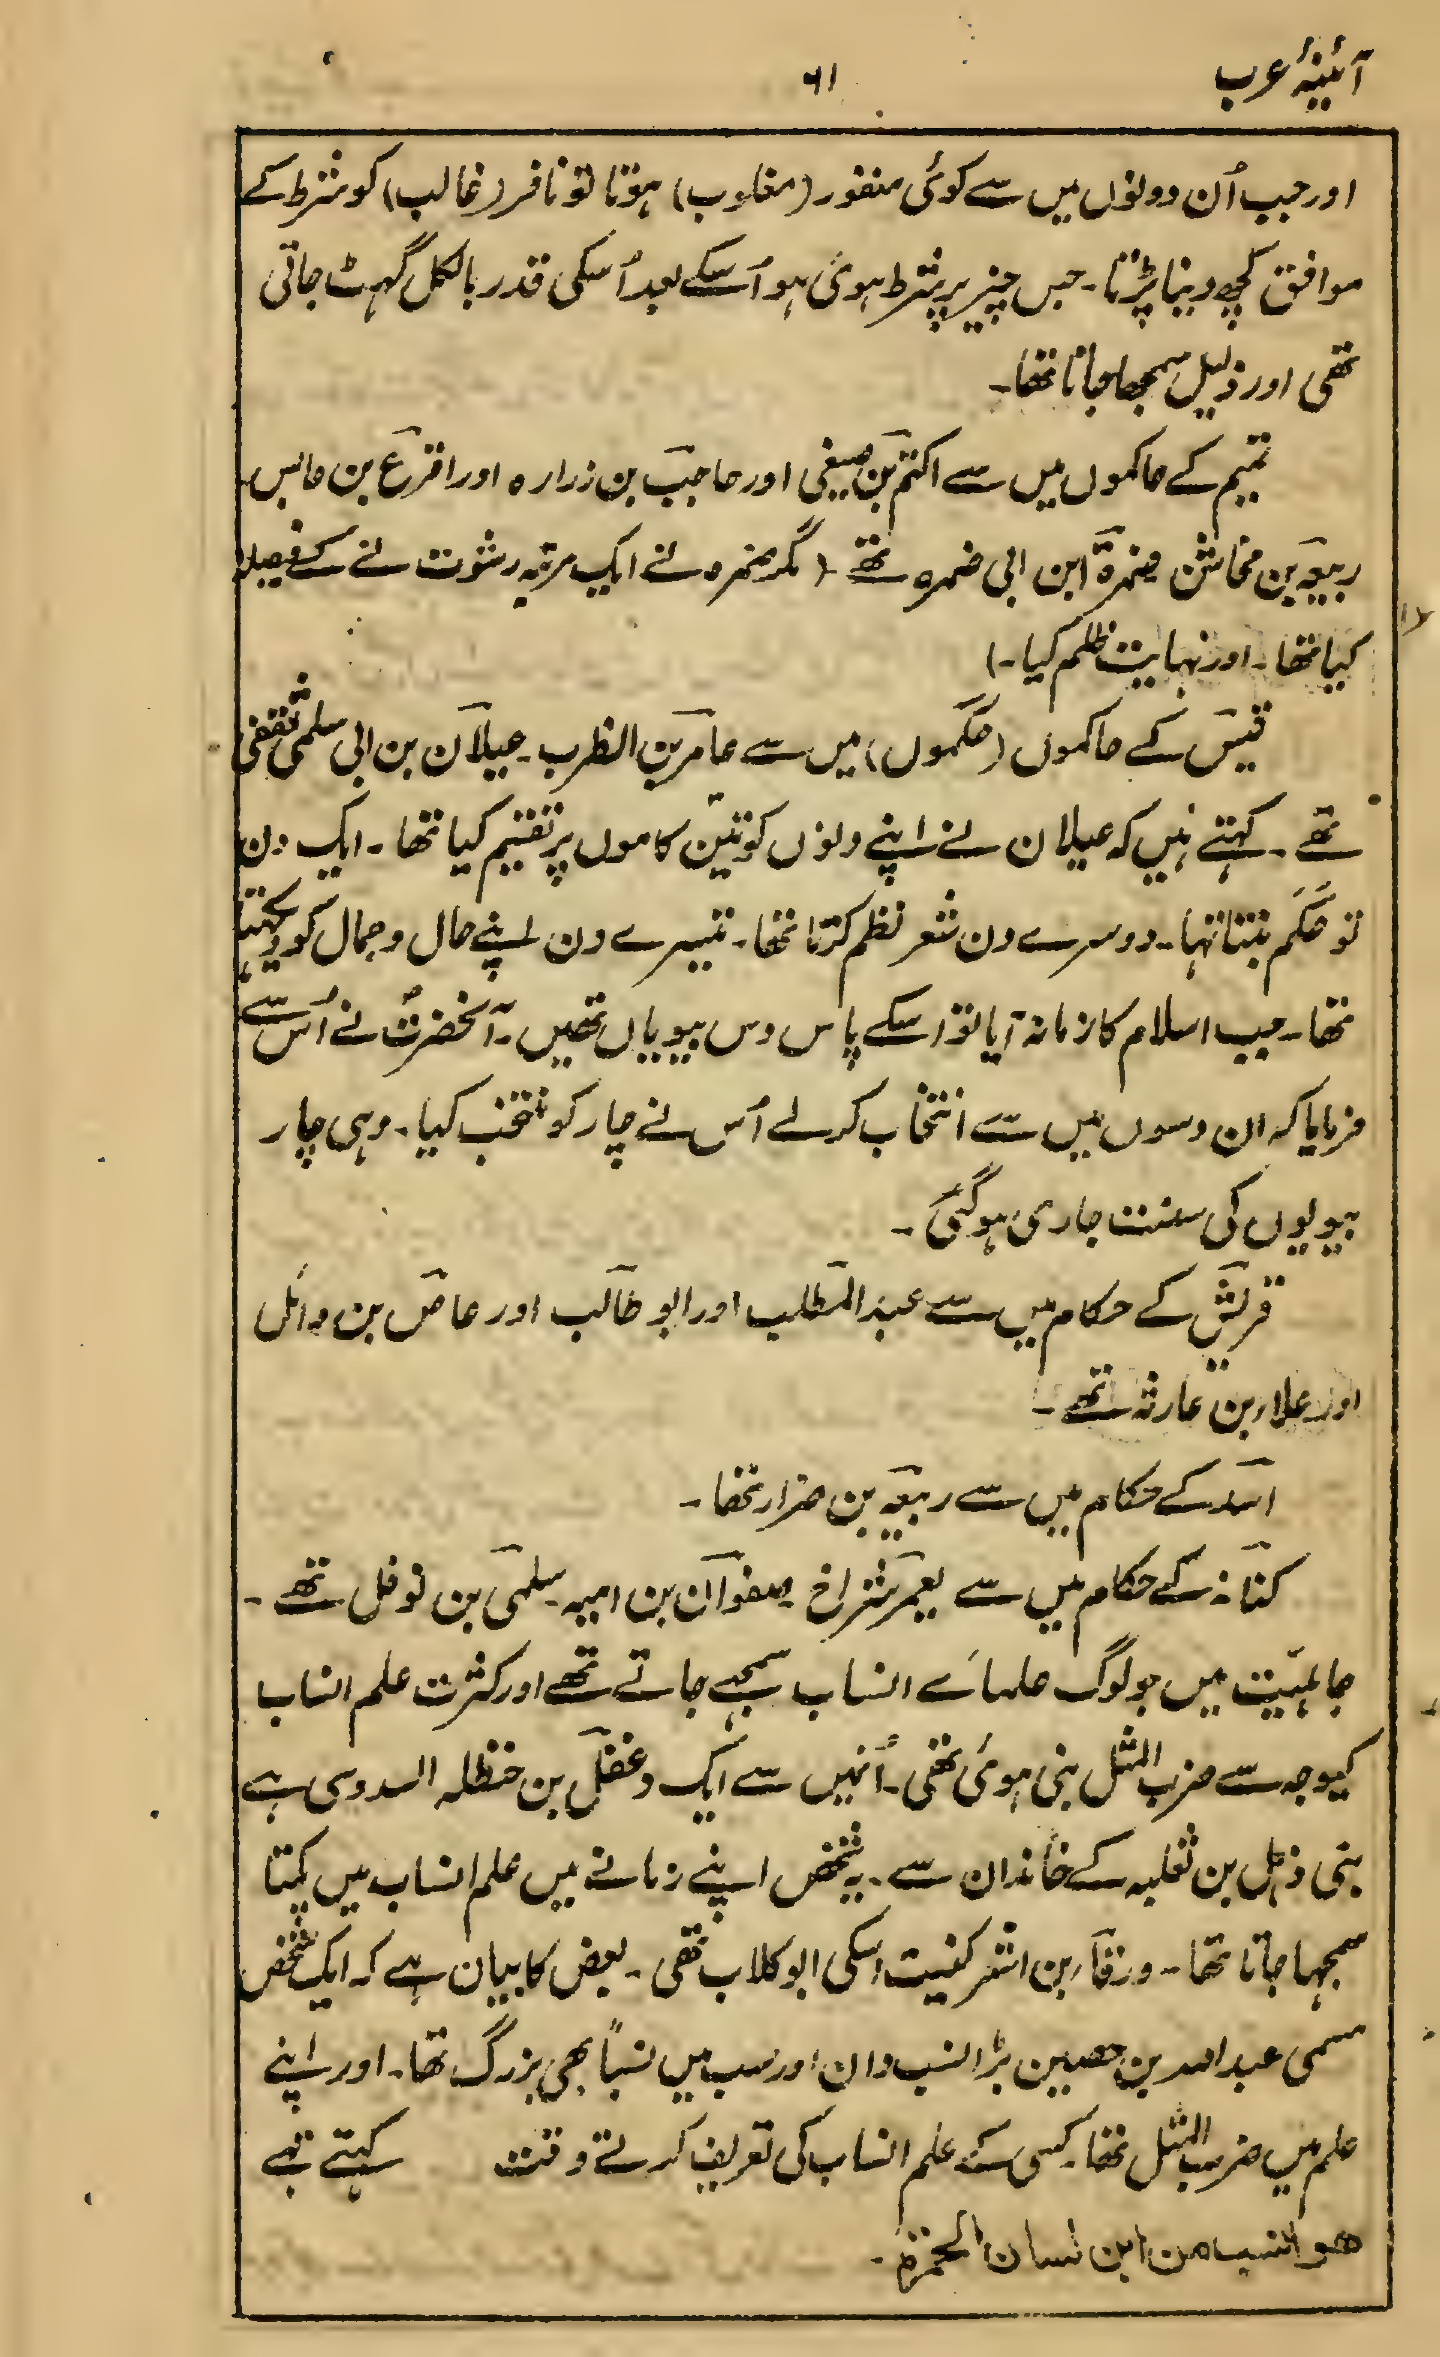 آئینۂ عرب
۶۱
اور جب اُن دونوں میں سے کوئی منفور (مغلوب) ہوتا تو نافر (غالب) کو شرط کے
موافق کچھ دینا پڑتا۔ جس چیز پر شرط ہوئی ہو اُسکے بعد اُسکی قدر بالکل گہٹ جاتی
تھی اور ذلیل سمجھا جاتا تھا۔
تمیم کے حاکموں میں سے اکثم بن صیفی اور حاجب بن زرارہ اور اقرع بن حابس۔
ربیعہ بن مخاشن ضمرة ابن ابی ضمرہ تھے (مگر ضمرہ نے ایک مرتبہ رشوت لے کے فیصلہ
کیا تھا۔ اور نہایت ظلم کیا۔)
قیس کے حاکموں (حَکَموں) میں سے عامر بن الظرب۔ عیلان بن ابی سلمی ثقفی
تھے۔ کہتے ہیں کہ عیلان نے اپنے دنوں کو تین کاموں پر تقسیم کیا تھا۔ ایک دن
تو حَکَم بنتا تہا۔ دوسرے دن شعر نظم کرتا تھا۔ تیسرے دن اپنے حال و جمال کو دیکہتا
تھا۔ جب اسلام کا زمانہ آیا تو اسکے پاس دس بیویاں تھیں۔ آنحضرتؐ نے اُس سے
فرمایا کہ ان دسوں میں سے انتخاب کرلے اُس نے چار کو منتخب کیا۔ وہی چار
بیویوں کی سنت جاری ہوگئی۔
قریش کے حکام میں سے عبد المطلب اور ابو طالب اور عاص بن وائل
اور علاء بن حارثہ تھے۔
اسد کے حکام میں سے ربیعہ بن ضرار تھا۔
کنانہ کے حکام میں سے یعمر شداخ۔ صفوان بن امیہ۔ سلمی بن نوفل تھے۔
جاہلیّت میں جو لوگ علمائے انساب سمجہے جاتے تھے اور کثرت علم انساب
کیوجہ سے ضرب المثل بنی ہوئی تھی۔ اُنہیں سے ایک دغفل بن حنظلہ السدوسی ہے
بنی ذہل بن ثعلبہ کے خاندان سے۔ یہ شخص اپنے زمانے میں علم انساب میں یکتا
سمجہا جاتا تھا۔ ورقاء بن اشعر کنیت اسکی ابو کلاب تھی۔ بعض کا بیان ہے کہ ایک شخص
مسمی عبد اللہ بن حصین بڑا نسب دان اور سب میں نسباً بھی بزرگ تھا۔ اور اپنے
علم میں ضرب المثل تھا۔ کسی کے علم انساب کی تعریف کرتے وقت کہتے تہے
ھو انسب من ابن لسان الحمرة۔